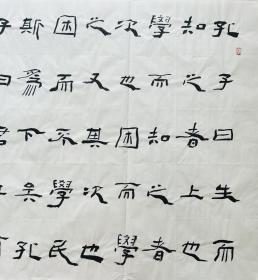 孔子曰生而
知之者上也
學而知之者
次也困而學
之又其次也
困而不學民
斯爲下矣孔
子曰君